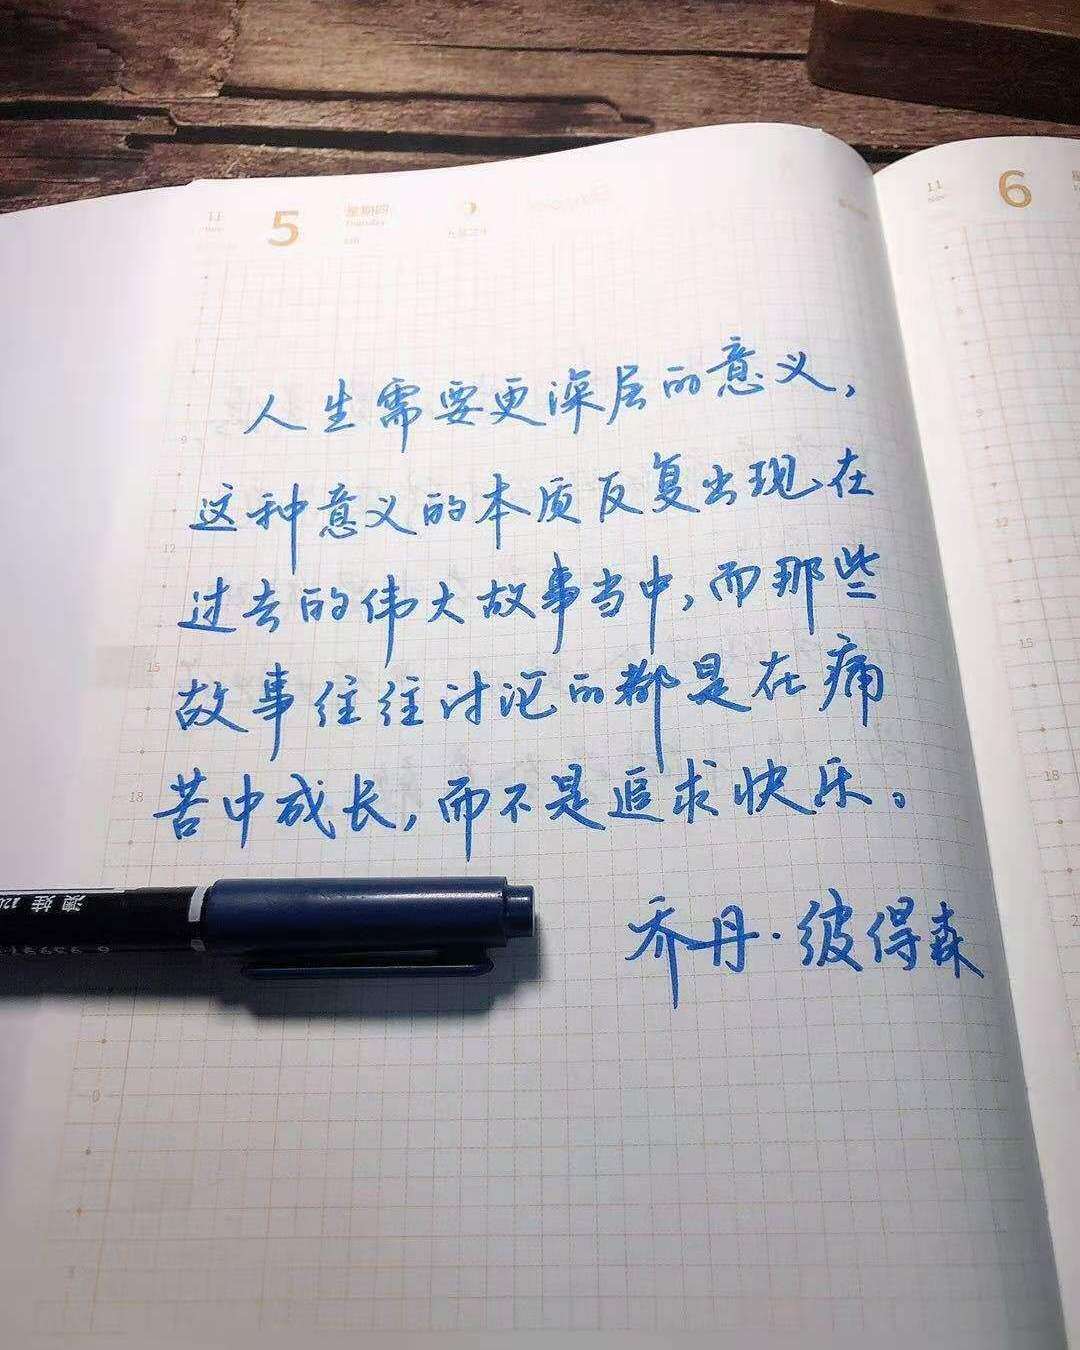 11
5
星期四
Thursday
11
6
人生需要更深层的意义，
这种意义的本质反复出现在
过去的伟大故事当中，而那些
故事往往讨论的都是在痛
苦中成长，而不是追求快乐。
乔丹·彼得森
9
12
15
18
0
3
12
15
18
澳娃